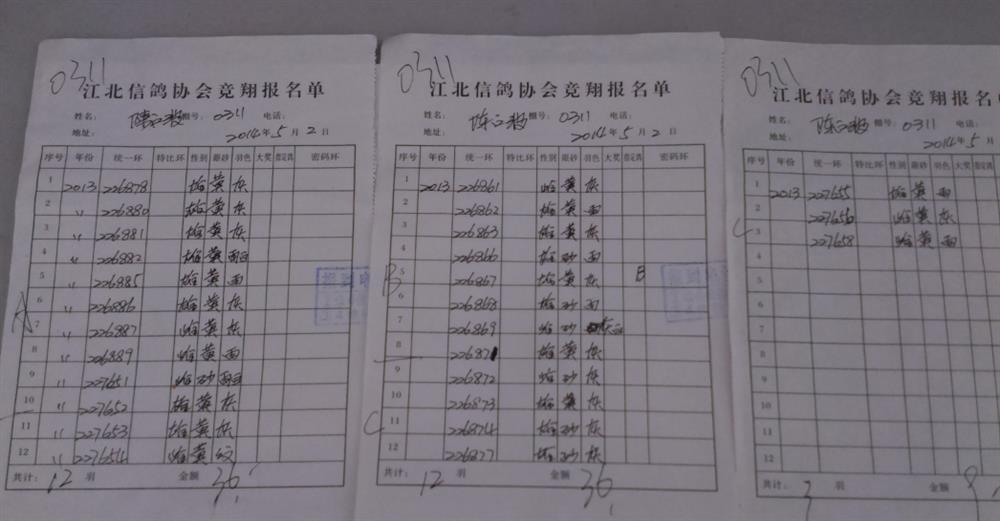 0311
江北信鸽协会竞翔报名单
姓名: 棚号: 0311 电话:
地址: 2014年5月2日
序号 年份 统一环 特比环 性别 眼砂 羽色 大奖 密码环
1 2013 226878 雄 黄 灰
2 〃 226880 雄 黄 灰
3 〃 226881 雄 黄 灰
4 〃 226882 雄 黄 雨
5 〃 226885 雄 黄 雨
6 〃 226886 雄 黄 灰
A
7 〃 226887 雄 黄 灰
8 〃 226889 雄 黄 雨
9 〃 227651 雄 砂 雨
10 〃 227652 雄 黄 灰
11 〃 227653 雄 黄 灰
12 〃 227654 雄 黄 纹
共计: 12 羽 金额 36
0311
江北信鸽协会竞翔报名单
姓名: 陈 棚号: 0311 电话:
地址: 2014年5月2日
序号 年份 统一环 特比环 性别 眼砂 羽色 大奖 密码环
1 2013 226861 雄 黄 灰
2 226862 雄 黄 雨
3 226863 雄 黄 灰
4 226866 雄 砂 雨
5 226867 雄 黄 灰 B
B
6 226868 雄 砂 雨
7 226869 雄 砂
8 226871 雄 黄 灰
9 226872 雄 砂 灰
10 226873 雄 黄 灰
C
11 226874 雄 砂 灰
12 226877 雄 砂 灰
共计: 12 羽 金额 36
0311
江北信鸽协会竞翔报名单
姓名: 陈 棚号: 0311 电话:
地址: 2014年5月2
序号 年份 统一环 特比环 性别 眼砂 羽色 大奖
1 2013 227655 雄 黄 雨
2 227656 雄 黄 灰
C
3 227658 雄 黄 雨
4
5
6
7
8
9
10
11
12
共计: 3 羽 金额 9